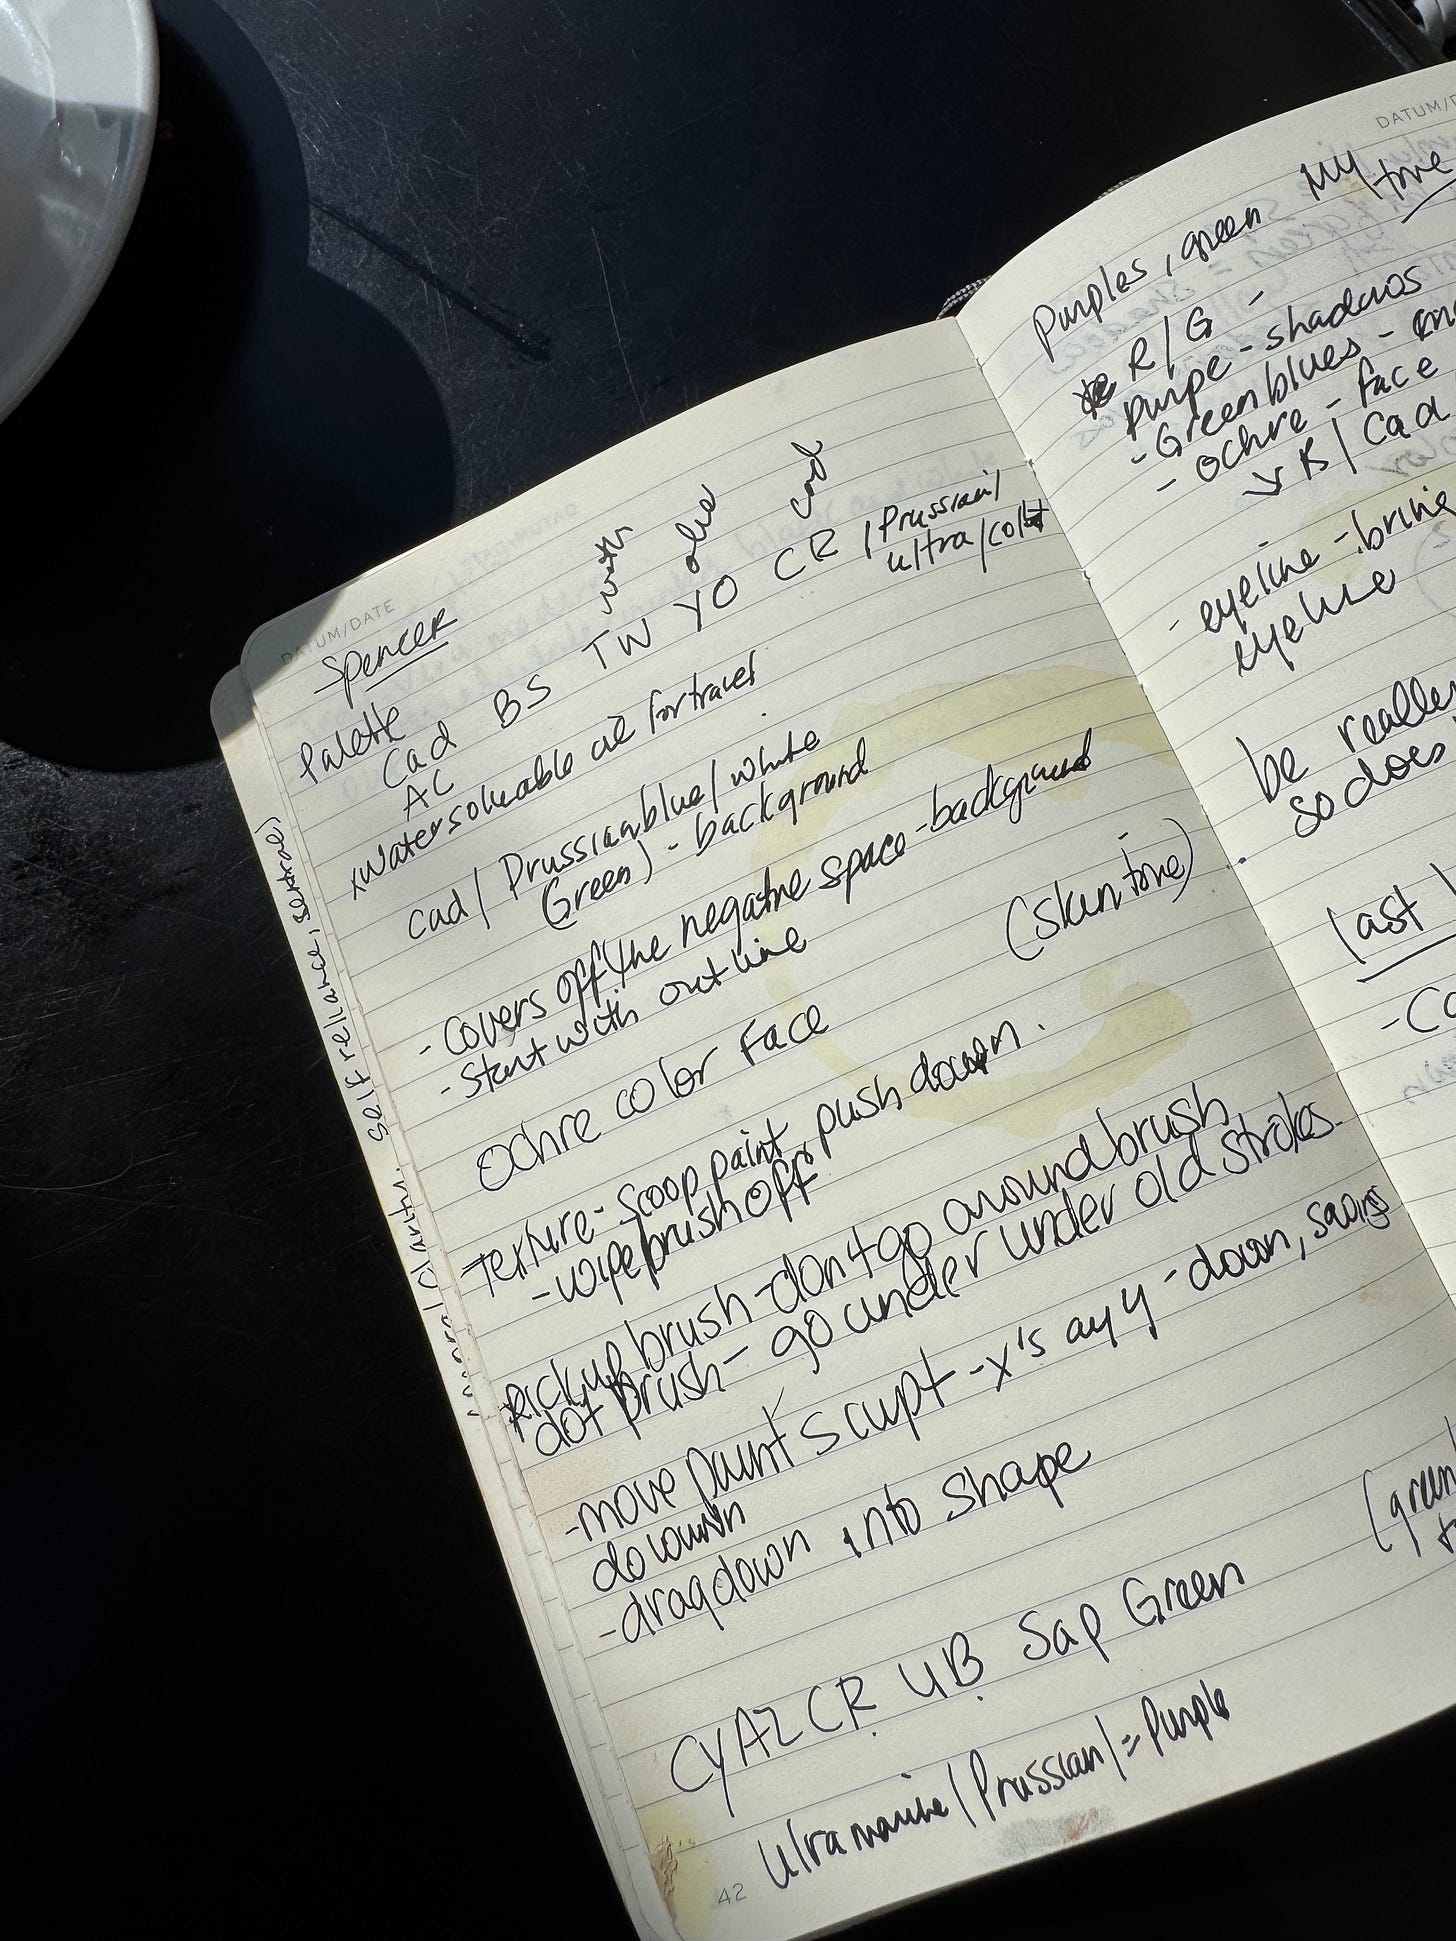 DATUM/DATE
Spencer
Palette
Cad BS TW YO CR / Prussian/
olive cool
ultra/cobt
AC
x Water soluable oil for travel
cad / Prussian blue / white
Green) - background
- Covers off the negative space - background
- Start with outline
(skin tone)
Ochre color Face
Texture - scoop paint, push down.
- wipe brush off
pickup brush - dont go around brush
dot brush - go under under old strokes.
- move paint scupt - x's any y - down,
- dragdown into shape
CYAZ CR UB Sap Green
Ultramarine / Prussian / = Purple
42
self reliance,
clarity.
DATUM/D
My
tone
Purples, green
R/G -
purpe - shadows
- Greenblues -
- ochre - face
B / Cad
- eyeline - bring
eyeline
be really
so does
last
- Co
(green